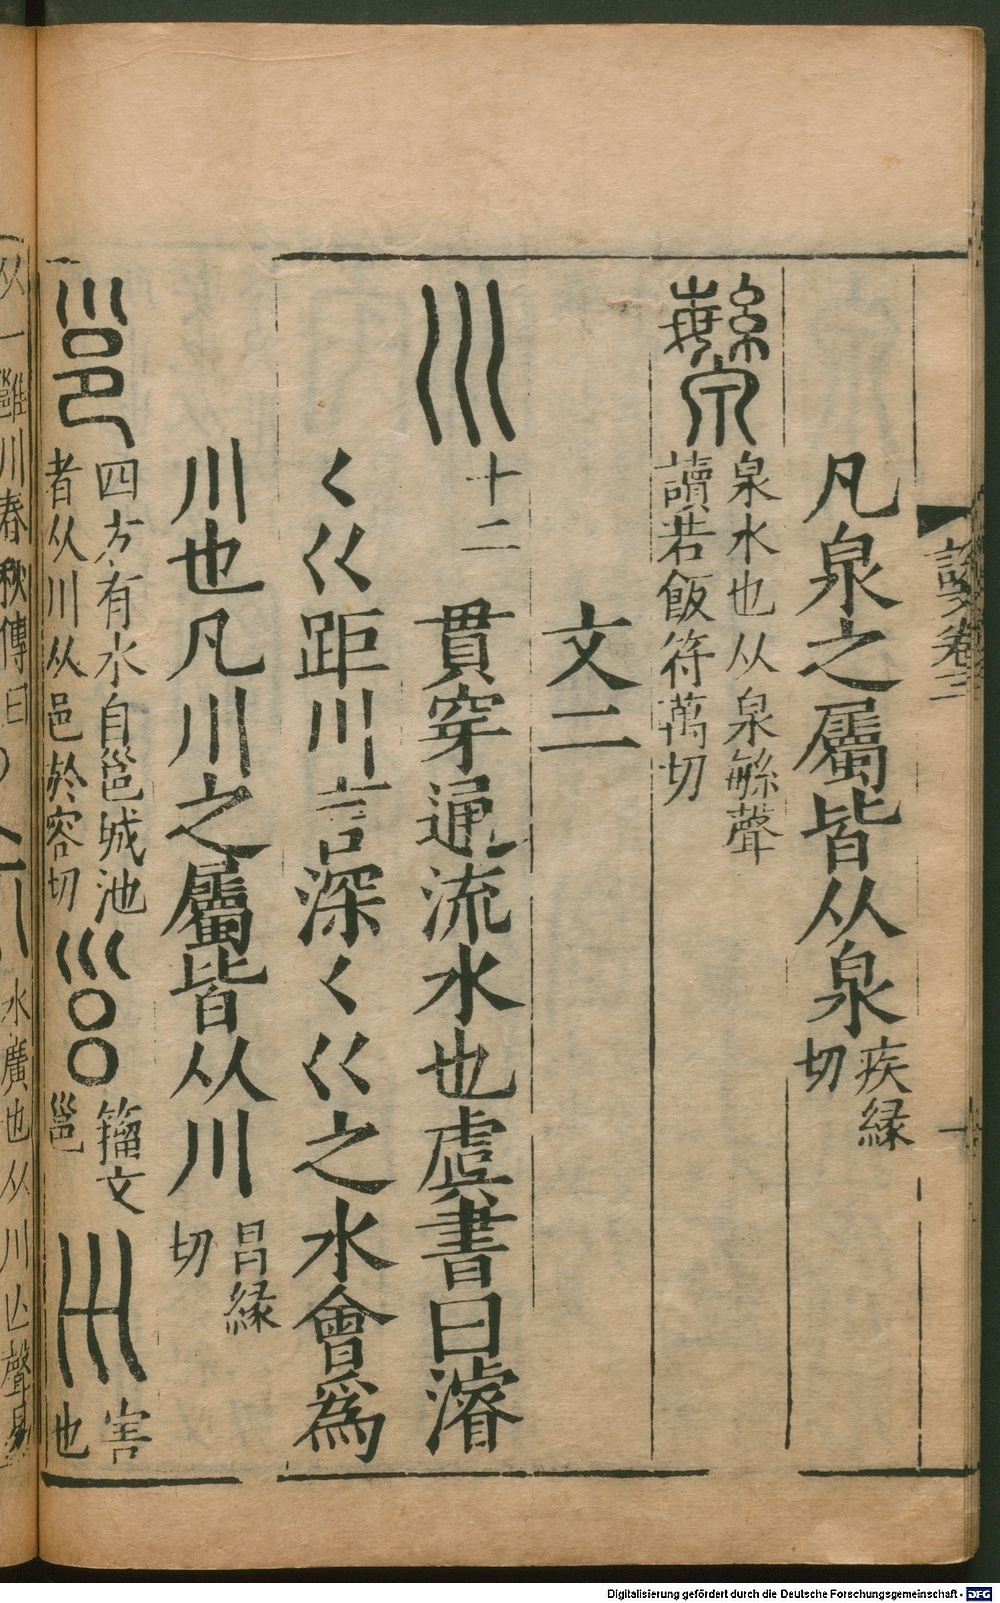 說文卷三
凡泉之屬皆从泉 疾緣切
泉水也从泉䋣聲
讀若飯符萬切
文二
川 十二 貫穿通流水也虞書曰濬
𡿨巜距川言深𡿨巜之水會爲
川也凡川之屬皆从川 昌緣切
邕 四方有水自邕城池
者从川从邑於容切
籀文
邕
害
也
从一雝川春秋傳曰
水廣也从川亾聲易
Digitalisierung gefördert durch die Deutsche Forschungsgemeinschaft - DFG